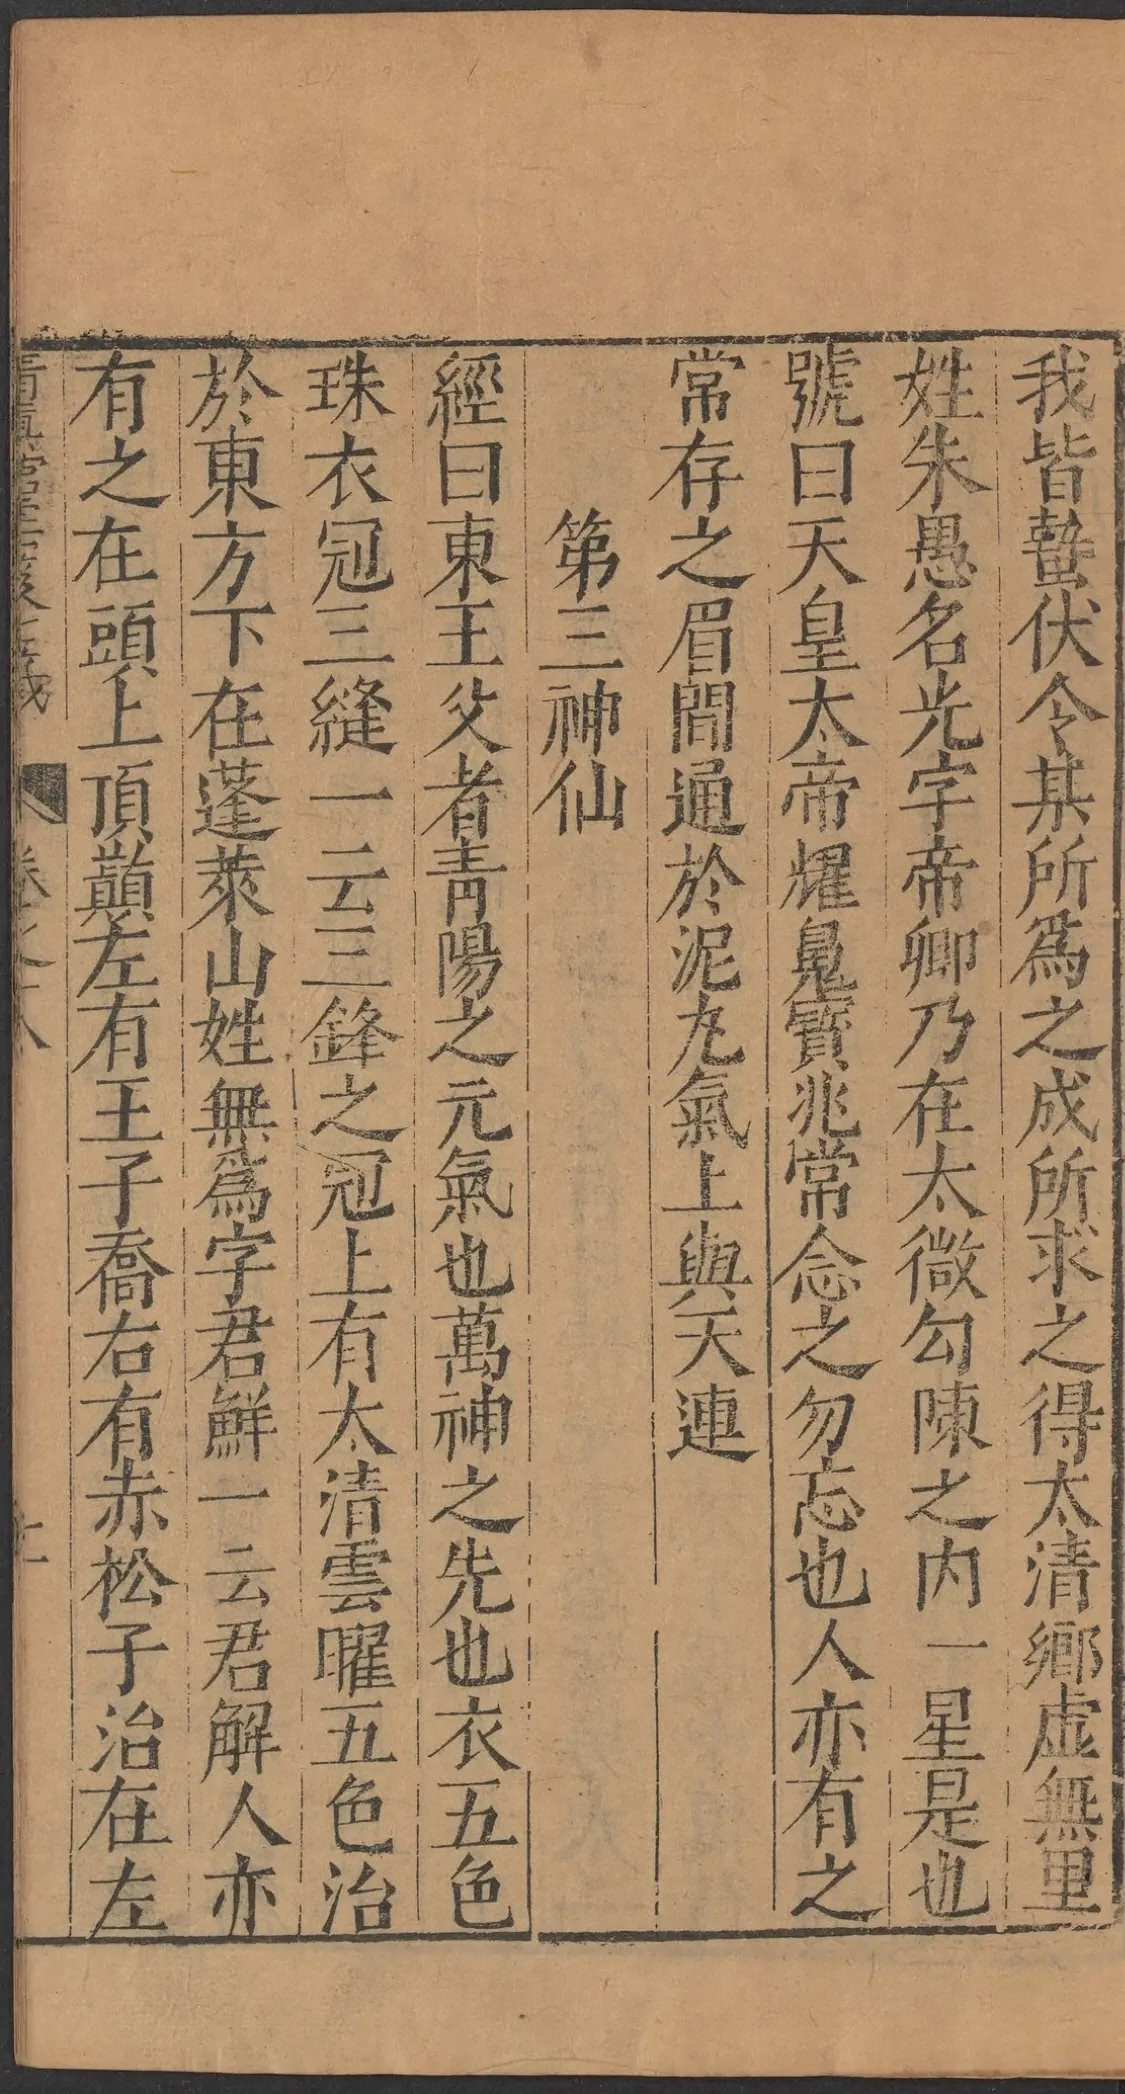 我皆蟄伏令某所爲之成所求之得太清鄉虛無里
姓朱愚名光字帝卿乃在太微勾陳之内一星是也
號曰天皇太帝燿鬼寶兆常念之勿忘也人亦有之
常存之眉間通於泥丸氣上與天連
第三神仙
經曰東王父者青陽之元氣也萬神之先也衣五色
珠衣冠三縫一云三鋒之冠上有太清雲曜五色治
於東方下在蓬萊山姓無爲字君鮮一云君解人亦
有之在頭上頂巔左有王子喬右有赤松子治在左
卷之十八